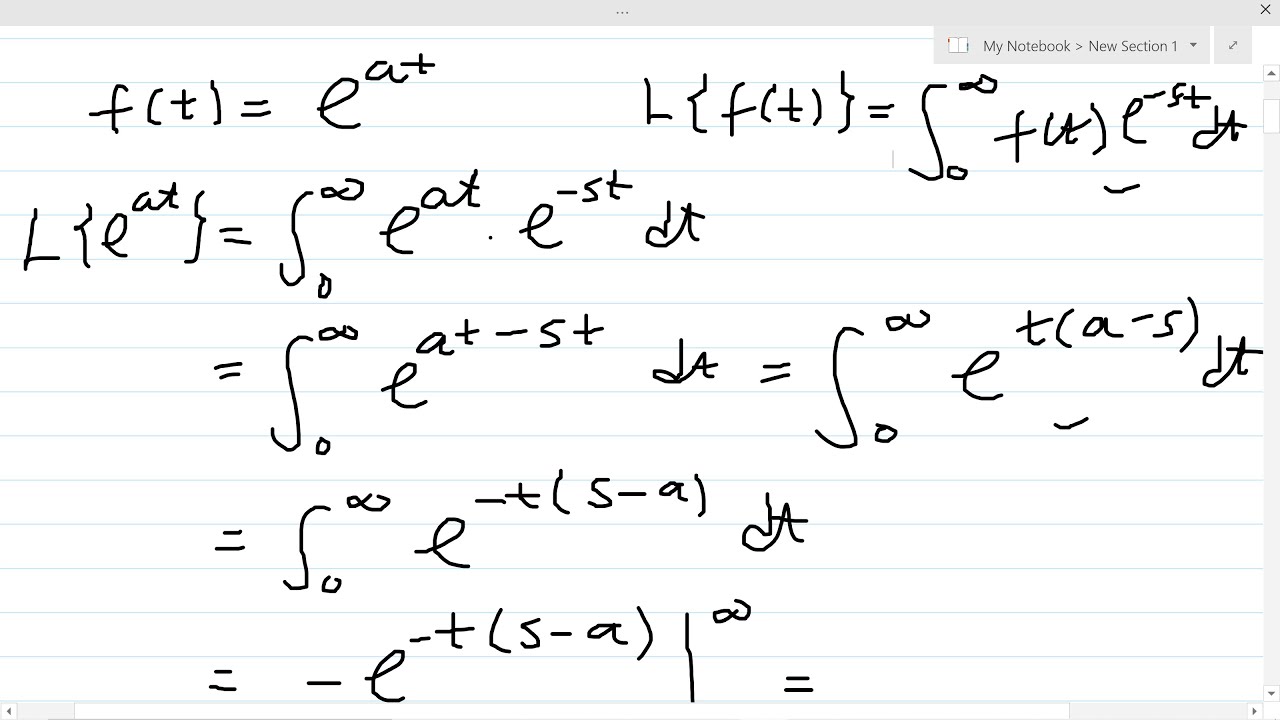 ...
My Notebook > New Section 1
f(t) = e^{at} L{f(t)} = ∫_0^∞ f(t) e^{-st} dt
L{e^{at}} = ∫_0^∞ e^{at} · e^{-st} dt
= ∫_0^∞ e^{at-st} dt = ∫_0^∞ e^{t(a-s)} dt
= ∫_0^∞ e^{-t(s-a)} dt
= -e^{-t(s-a)} |^∞ =